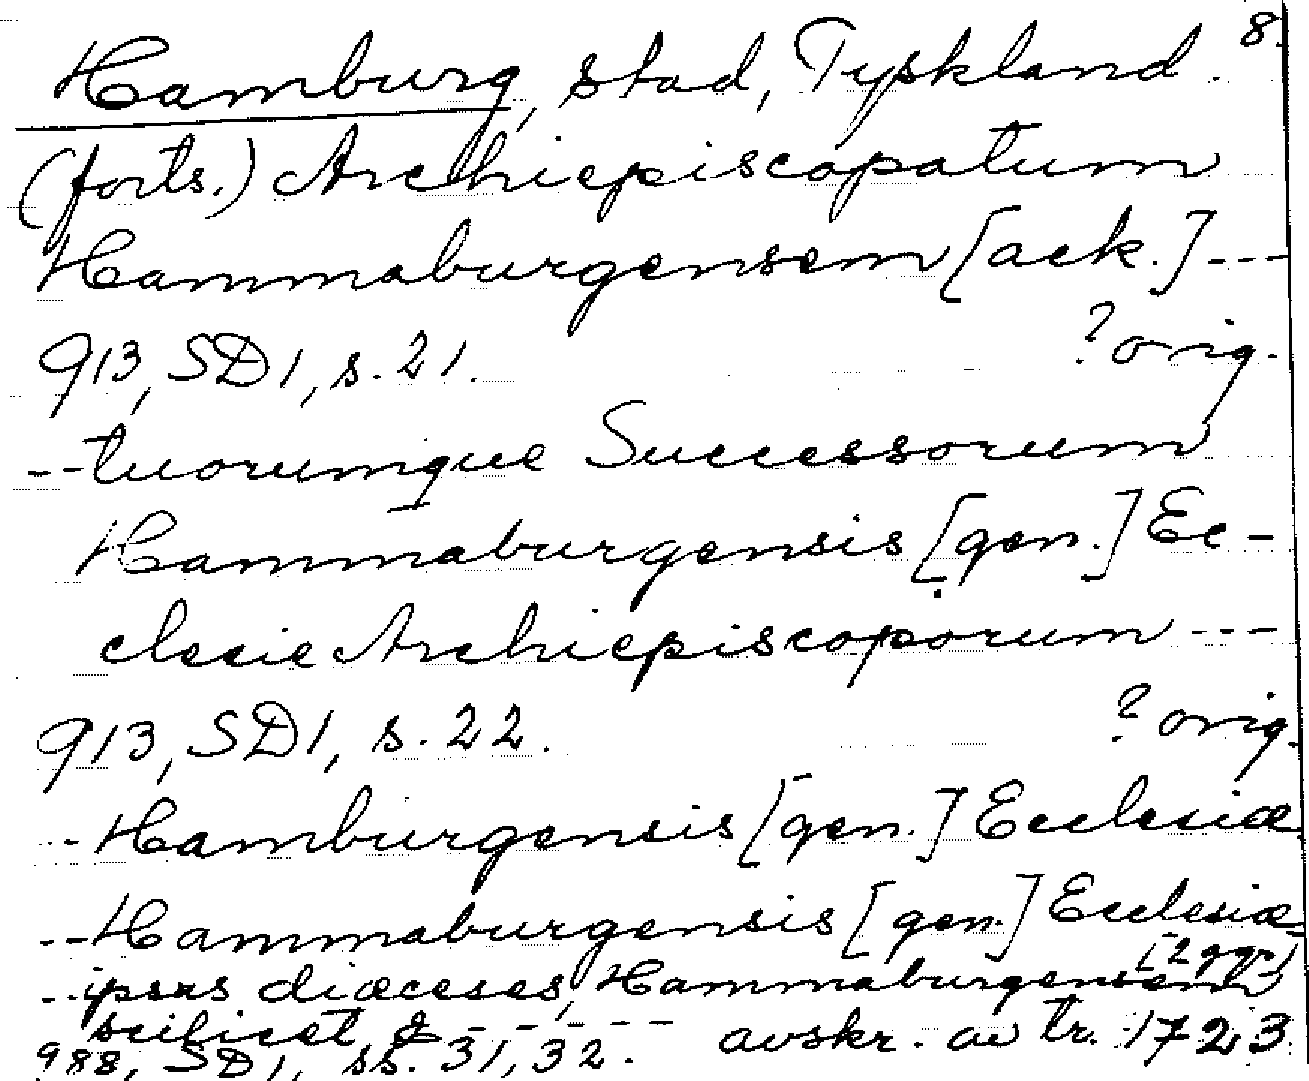 8.
Hamburg, stad, Tyskland.
(forts.) Archiepiscopatum
Hammaburgensem [ack.] ---
913, SD1, s. 21. ? orig.
--tuorumque Successorum
Hammaburgensis [gen.] Ec-
clesie Archiepiscoporum ---
913, SD1, s. 22. ? orig.
--Hamburgensis [gen.] Ecclesiæ
--Hammaburgensis [gen.] Ecclesiæ
(2 ggr)
--ipsas diæceses, Hammaburgensem
scilicet & -----
988, SD1, ss. 31, 32. avskr. av tr. 1723.